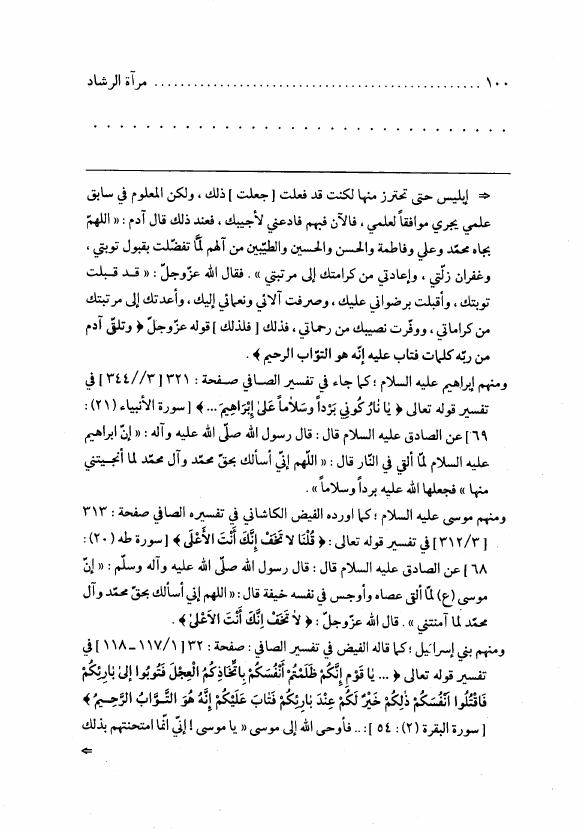 ١٠٠ ................................................ مرآة الرشاد
. . . . . . . . . . . . . . . . . . . . . . . . . . . . . .
⇒ إبليس حتى تحترز منها لكنت قد فعلت [ جعلت ] ذلك ، ولكن المعلوم في سابق
علمي يجري موافقاً لعلمي ، فالآن فبهم فادعني لأجيبك ، فعند ذلك قال آدم : « اللهمّ
بجاه محمّد وعلي وفاطمة والحسن والحسين والطيّبين من آلهم لمّا تفضّلت بقبول توبتي ،
وغفران زلّتي ، وإعادتي من كرامتك إلى مرتبتي » . فقال الله عزّوجلّ : « قـد قـبلت
توبتك ، وأقبلت برضواني عليك ، وصرفت آلائي ونعمائي إليك ، وأعدتك إلى مرتبتك
من كراماتي ، ووفّرت نصيبك من رحماتي ، فذلك [ فلذلك ] قوله عزّوجلّ ﴿ وتلقّى آدم
من ربّه كلمات فتاب عليه إنّه هو التوّاب الرحيم ﴾ .
ومنهم إبراهيم عليه السلام ؛ كـما جاء في تفسير الصـافي صـفحة : ٣٢١ [ ٣//٣٤٤ ] في
تفسير قوله تعالى ﴿ يَا نَارُ كُونِي بَرْداً وسَلَاماً عَلىٰ إِبْرَاهِيمَ ... ﴾ [ سورة الأنبياء (٢١) :
٦٩ ] عن الصادق عليه السلام قال : قال رسول الله صلّى الله عليه وآله : « إنّ ابراهيم
عليه السلام لمّا ألقي في النّار قال : « اللّهم إنّي أسألك بحقّ محمّد وآل محمّد لما أنجـيتني
منها » فجعلها الله عليه برداً وسلاماً » .
ومنهم موسى عليه السلام ؛ كـما اورده الفيض الكاشاني في تفسيره الصافي صفحة : ٣١٣
[ ٣١٢/٣ ] في تفسير قوله تعالى : ﴿ قُلْنَا لا تَخَفْ إِنَّكَ أَنْتَ الأَعْلَى ﴾ [ سورة طه (٢٠) :
٦٨ ] عن الصادق عليه السلام قال : قال رسول الله صلّى الله عليه وآله وسلّم : « إنّ
موسى (ع) لمّا ألقى عصاه وأوجس في نفسه خيفة قال : « اللهم إني أسألك بحقّ محمّد وآل
محمّد لما آمنتني » . قال الله عزّوجلّ : ﴿ لا تَخَفْ إِنَّكَ أَنْتَ الأَعْلىٰ ﴾ .
ومنهم بني إسرائيل ؛ كما قاله الفيض في تفسير الصافي : صفحة : ٣٢ [ ١١٧/١ ـ ١١٨ ] في
تفسير قوله تعالى ﴿ ... يَا قَوْمِ إِنَّكُمْ ظَلَمْتُمْ أَنْفُسَكُمْ بِاتِّخَاذِكُمُ الْعِجْلَ فَتُوبُوا إِلىٰ بَارِئِكُمْ
فَاقْتُلُوا أَنْفُسَكُمْ ذٰلِكُمْ خَيْرٌ لَكُمْ عِنْدَ بَارِئِكُمْ فَتَابَ عَلَيْكُمْ إِنَّهُ هُوَ التَّـوَّابُ الرَّحِـيمُ ﴾
[ سورة البقرة (٢) : ٥٤ ] : .. فأوحى الله إلى موسى « يا موسى ! إنّي انّما امتحنتهم بذلك
⇐